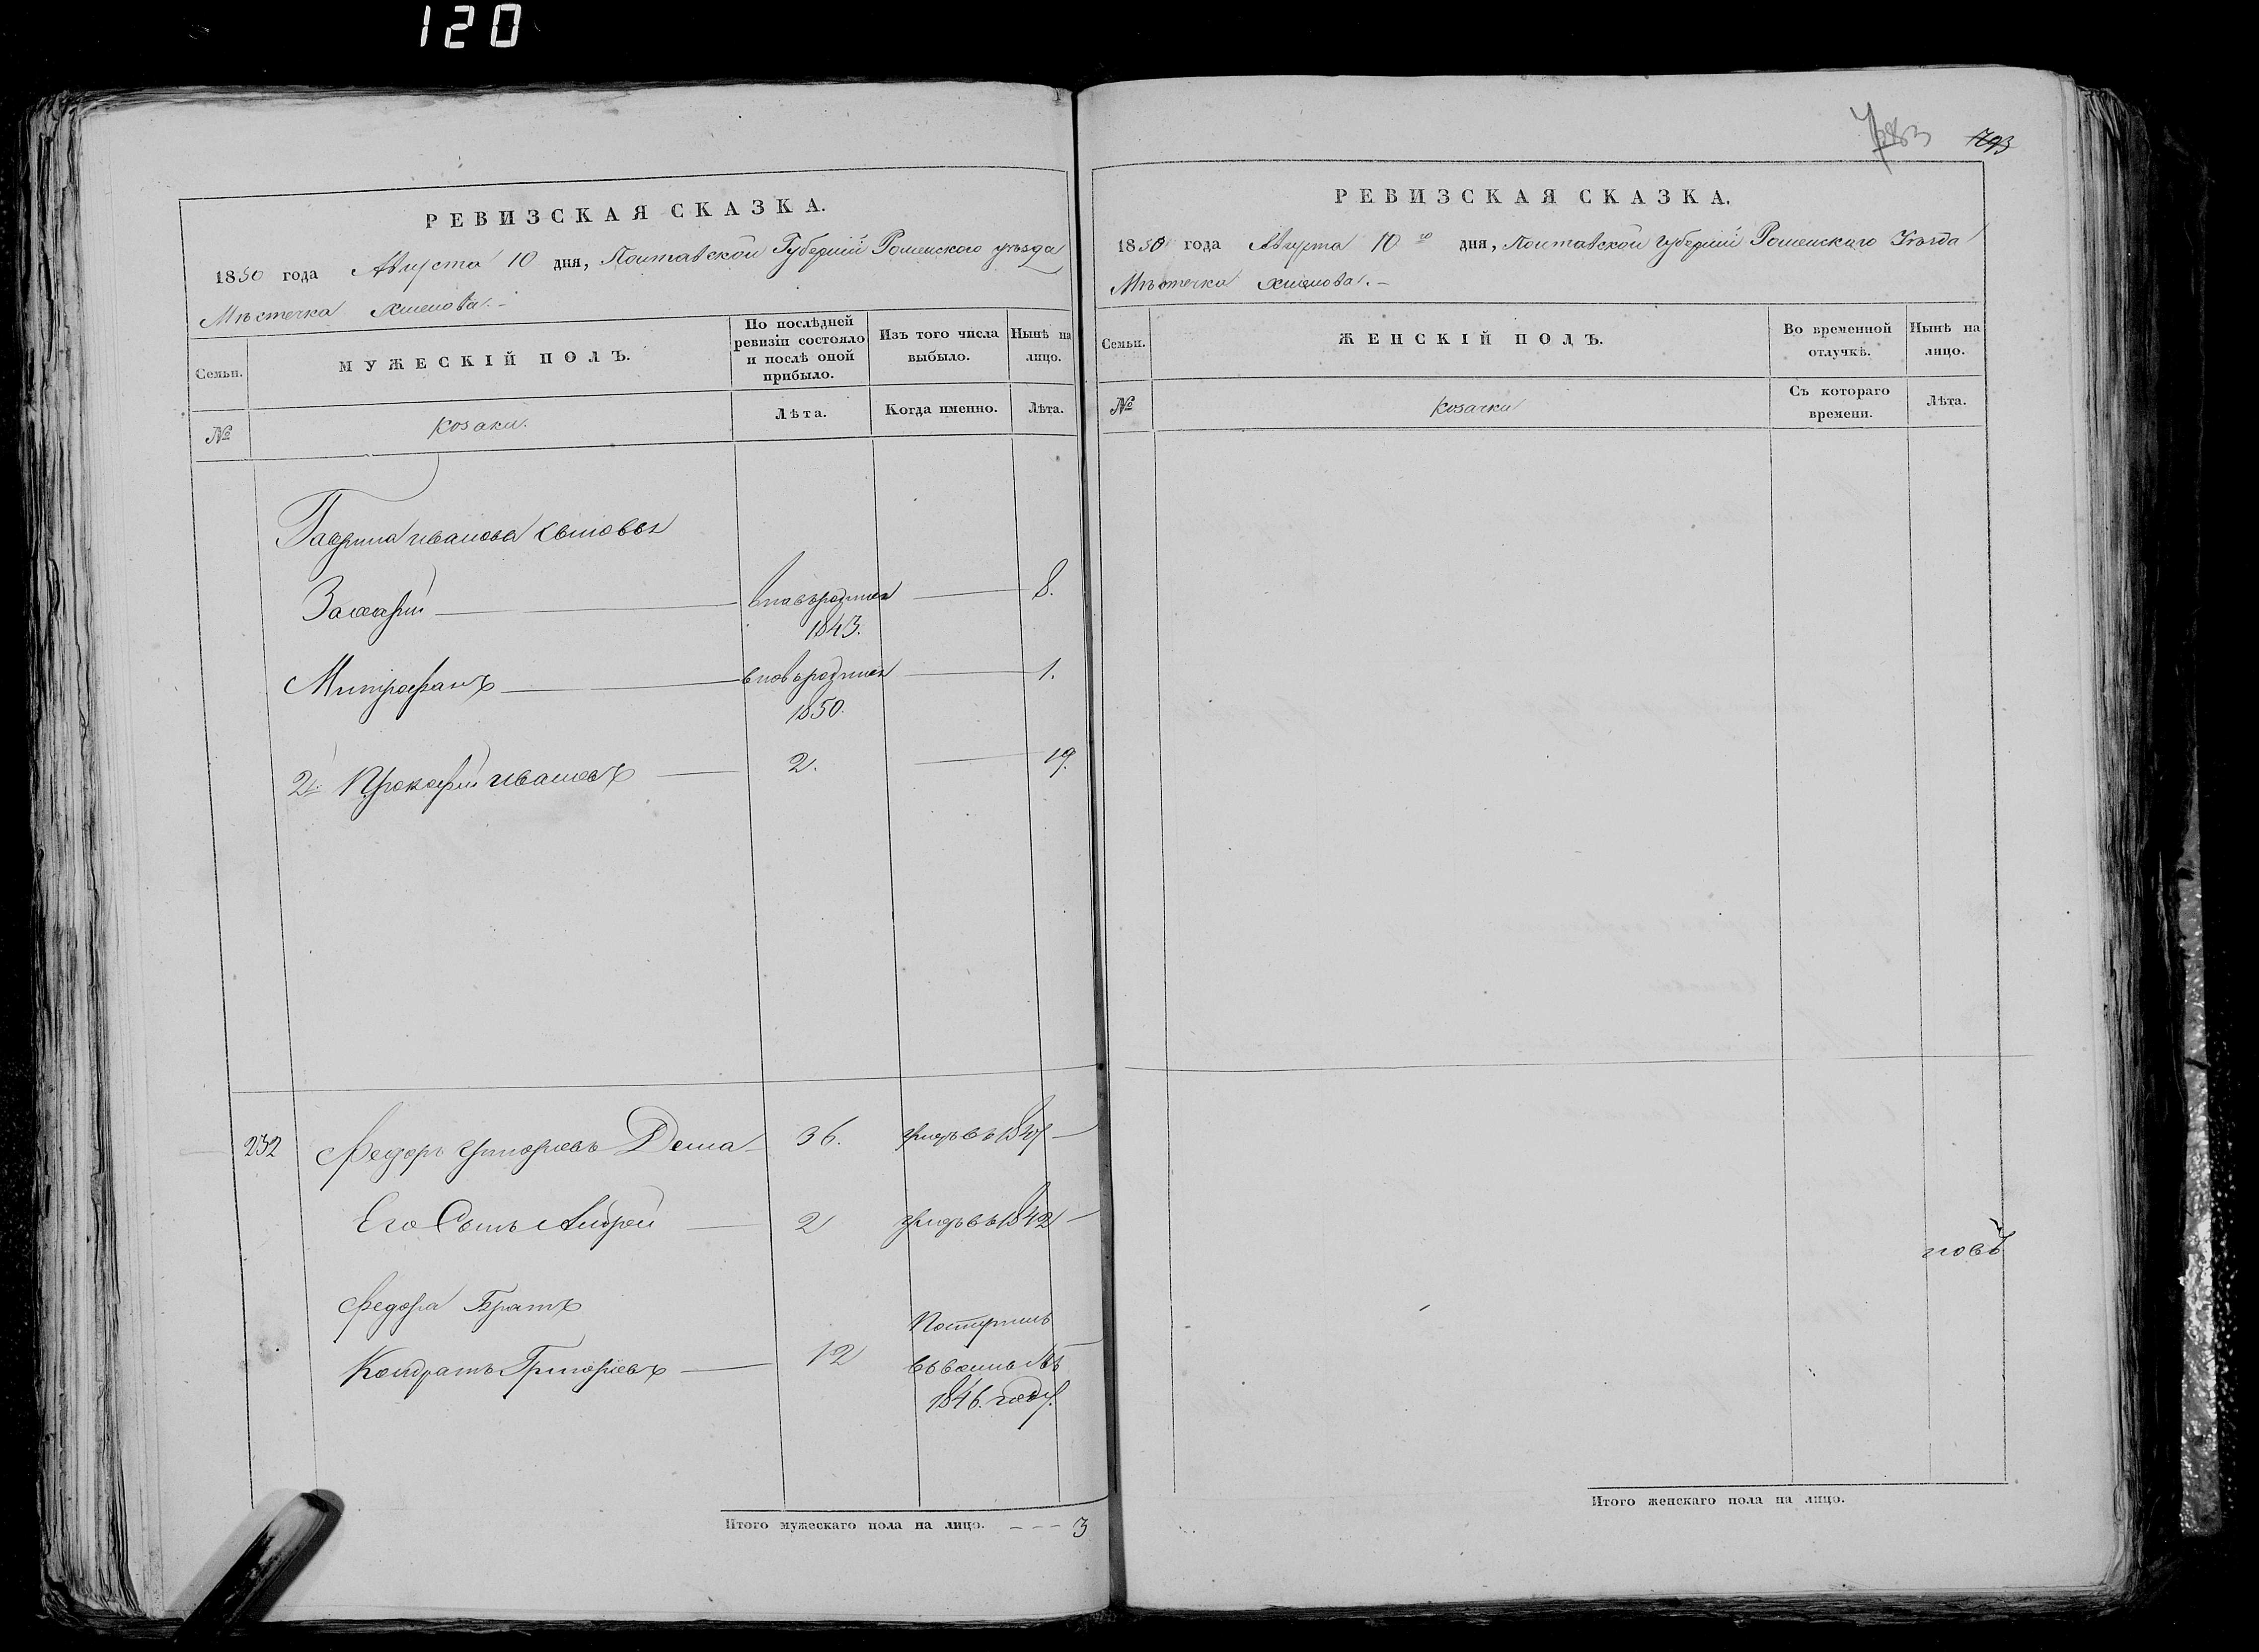 120
РЕВИЗСКАЯ СКАЗКА.
1850 года Августа 10 дня, Полтавской Губернїи Роменского уѣзда
Мѣстечка Хмелова.
Семьи.
МУЖЕСКІЙ ПОЛЪ.
По послѣдней ревизіи состояло и послѣ оной прибыло.
Изъ того числа выбыло.
Нынѣ на лицо.
№
козаки.
Лѣта.
Когда именно.
Лѣта.
Гаврила Иванова сыновья
Захарїй
вновь родился
8.
1843.
Митрофанъ
вновь родился
1.
1850.
2й Прокофїй Ивановъ
2.
19.
232
Федоръ Григорьевъ
36.
Его Сынъ Андрей
2
умеръ въ 1842
Федора Братъ
Поступилъ
Кондратъ Григорьевъ
12
1846. году.
Итого мужескаго пола на лицо. --- 3
793
РЕВИЗСКАЯ СКАЗКА.
1850 года Августа 10го дня, Полтавской Губернїи Роменского Уѣзда
Мѣстечка Хмелова.
Семьи.
ЖЕНСКІЙ ПОЛЪ.
Во временной отлучкѣ.
Нынѣ на лицо.
№
козачки
Съ котораго времени.
Лѣта.
Итого женскаго пола на лицо.